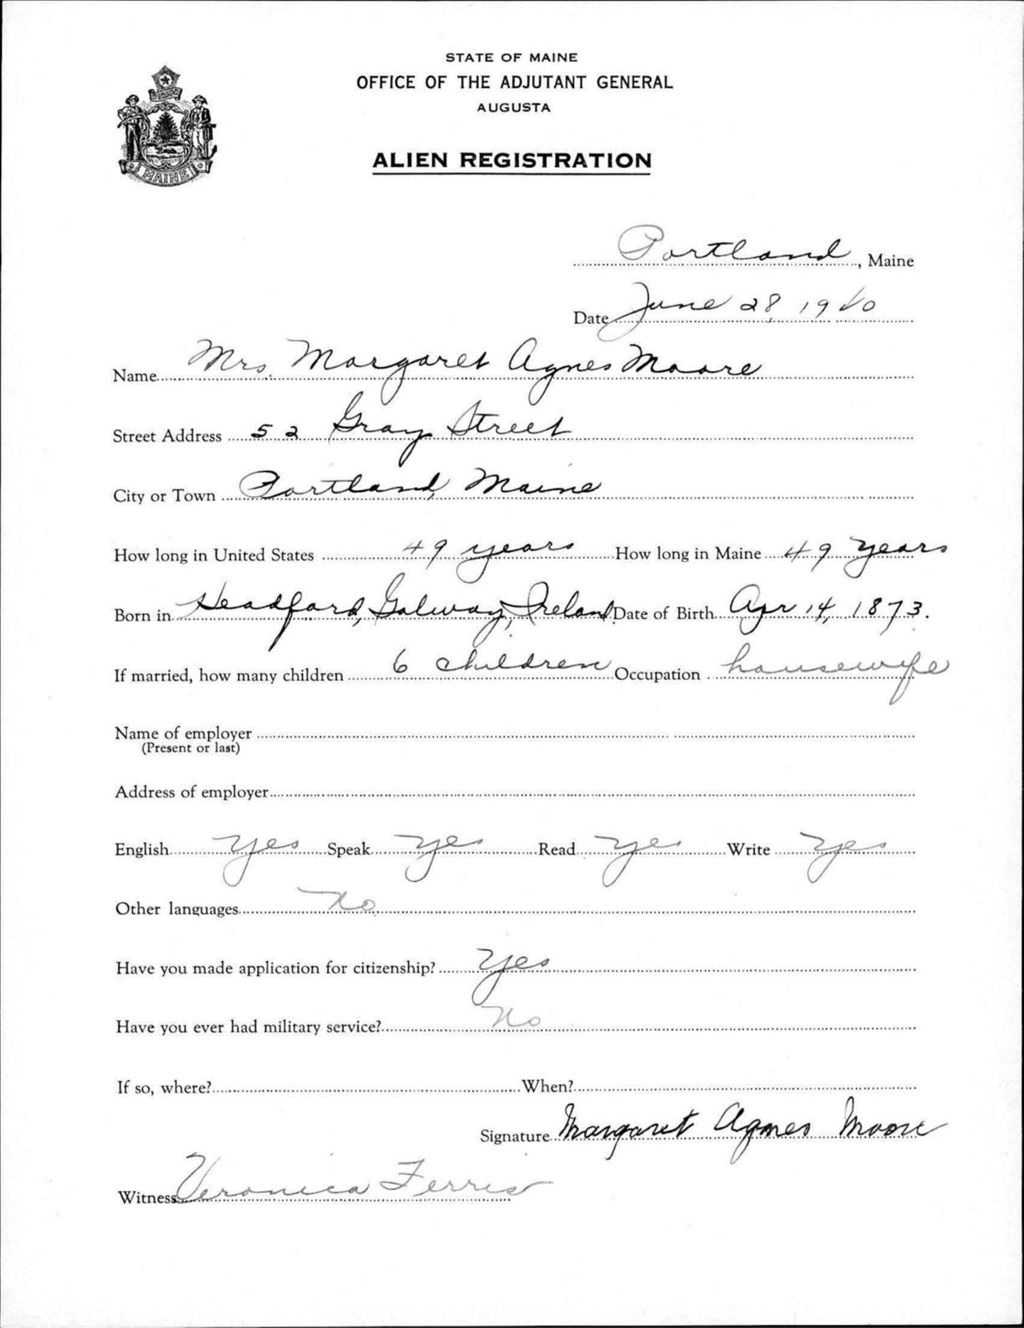 STATE OF MAINE
OFFICE OF THE ADJUTANT GENERAL
AUGUSTA
ALIEN REGISTRATION
MAINE
Portland, Maine
Date June 28, 1940
Name Mrs. Margaret Agnes Moore
Street Address 52 Gray Street
City or Town Portland, Maine
How long in United States 49 years How long in Maine 49 years
Born in Headford, Galway, Ireland Date of Birth Apr 14, 1873.
If married, how many children 6 children Occupation housewife
Name of employer
(Present or last)
Address of employer
English yes Speak yes Read yes Write yes
Other languages No
Have you made application for citizenship? Yes
Have you ever had military service? No
If so, where? When?
Signature Margaret Agnes Moore
Witness Veronica Ferris